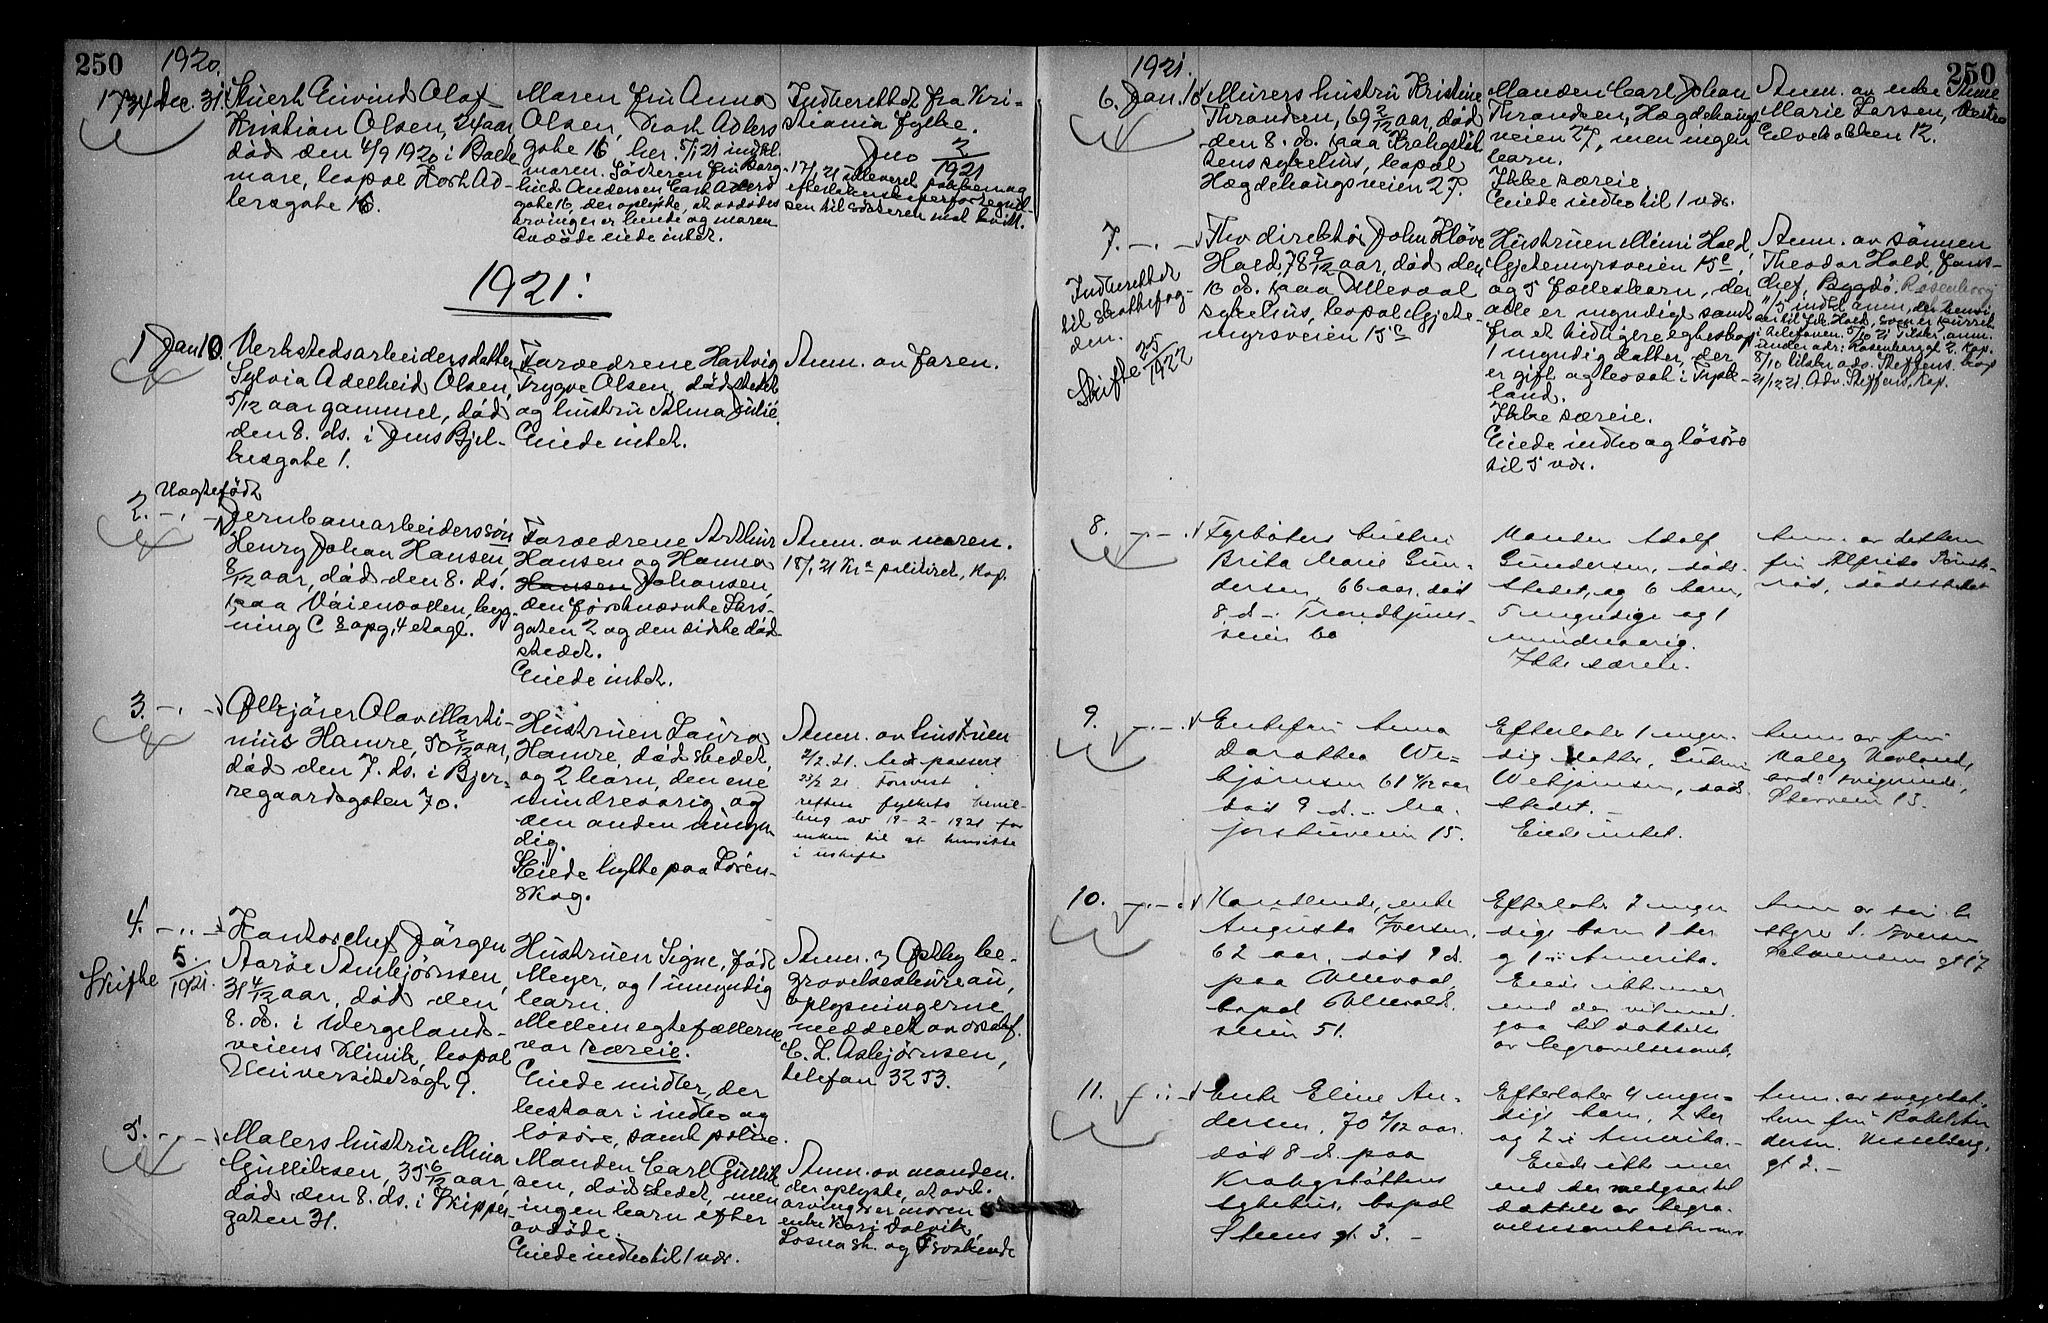 250
1920.
1734 Dec. 31.
Stuert Eivind Olaf
Kristian Olsen, 24 aar
død den 4/9 1920 i Balti-
more, bopæl Kort Ad-
lersgate 16.
Maren fru Anna
Olsen, Kort Adlers
gate 16, her. 5/1 21
maren. Søsteren fru
Andersen Cort Adlers
gate 16, der oplyste, at avdødes
arvinger er hende og maren
Avdøde eiede intet.
Indberettet fra Kri-
stiania fylke.
Jno 2/1921
17/1 21 utleveret
til søsteren mot kvitt.
1921:
1 Jan 10.
Verkstedsarbeiders datter
Sylvia Adelheid Olsen,
5/12 aar gammel, død
den 8. ds. i Jens Bjel-
kesgate 1.
Forældrene Hartvig
Trygve Olsen, dødsstedet
og hustru Alma Julie.
Eiede intet.
Anm. av faren.
Uægtefødt
2. -.- Jernbanearbeiderssøn
Henry Johan Hansen,
8/12 aar, død den 8. ds.
paa Vaienvolden, byg-
ning C 2 opg. 4 etage.
Forældrene Arthur
Hansen og Hanna
Hansen Johansen,
den førstnævnte Lars-
gaten 2 og den sidste død-
stedet.
Eiede intet.
Anm. av moren.
18/1 21 Kr.a politiret, Kop.
3. -.- Ølkjører Olav Marti-
nius Hamre, 50 2/12 aar,
død den 7. ds. i Bjer-
regaardsgaten 70.
Hustruen Laura
Hamre, dødstedet,
og 2 barn, den ene
mindreaarig og
den anden umyn-
dig.
Eiede hytte paa Løren-
skog.
Anm. av hustruen
2/2 21.
23/2 21
retten fylkets bevil-
ling av 19-2-1921 for
enken til at hensitte
i uskifte
4. -.- Kontorchef Jørgen
Aarøe Asbjørnsen,
31 4/12 aar, død den
8. ds. i Wergelands-
veiens Klinik, bopæl
Universitetsgt 9.
Skifte 5/1921.
Hustruen Signe, født
Meyer, og 1 umyndig
barn.
Mellem egtefællerne
var særeie.
Eiede midler, der
bestaar i indbo og
løsøre, samt police.
Anm. av Opkly be-
gravelsesbureau,
oplysningerne
meddelt av
C. L. Asbjørnsen,
telefon 3253.
5. -.- Malers hustru Mina
Gulliksen, 35 6/12 aar,
død den 8. ds. i Skipper-
gaten 31.
Manden Carl Gullik-
sen, dødstedet, men
ingen barn efter
avdøde.
Eiede indbo til 1 vdr.
Anm. av manden.
der oplyste, at avd.
arvinger er moren
enke Kari Dalvik
Losna st. og 5 søskende
1921.
250
6. Jan. 10 Murers hustru Kristine
Thrandsen, 69 2/12 aar, død
den 8. ds. paa Krohgstøt-
tens sykehus, bopæl
Hægdehaugsveien 27.
Manden Carl Johan
Thrandsen, Hægdehaugs-
veien 27, men ingen
barn.
Ikke særeie.
Eiede indbo til 1 vdr.
Anm. av enke Anne
Marie Larsen, Vestre
Elvebakken 12.
7. -.- Fhv direktør John Kløve
Hold, 78 9/12 aar, død den
10 ds. paa Ullevaal
sykehus, bopæl Gjete-
myrsveien 15c
Indberettet
til skattefog-
den.
Skifte 25/1922
Hustruen Mimi Hold,
Gjetemyrsveien 15c,
og 5 fællesbarn, der
alle er myndige samt
fra et tidligere egteskap
1 myndig datter, der
er gift og bosat i Tysk-
land.
Ikke særeie.
Eiede indbo og løsøre
til 5 vdr.
Anm. av sønnen
Theodor Hold, fors-
chef, Bygdø, Rosenborg
under adr: Rosenborg gt 2. Kop.
8/10 tilskr. adv. Steffens. Kop
21/12 21. Adv. Steffens, Kop.
8. -.- Fyrbøters hustru
Brita Marie Gun-
dersen, 66 aar, død
8. d. - Trondhjems-
veien 60
Manden Adolf
Gundersen, døds-
stedet, og 6 barn,
5 myndige og 1
mindreaarig.
Ikke særeie.
Anm. av datteren
fru Alfrida
dødsstedet
9. -.- Enkefru Anna
Dorothea We-
bjørnsen 61 4/12 aar
død 9 d. - Ma-
jorstuveien 15.
Efterlater 1 myn-
dig datter,
Webjørnsen, døds-
stedet. -
Eiede intet.
Anm. av fru
Valey Havland,
avd.s svigerinde,
13.
10. -.- Handlende, enke
Augusta Iversen,
62 aar, død 9 d.
paa Ullevaal,
bopæl Ullevolds-
veien 51.
Efterlater 2 myn-
dige barn 1 her
og 1 i Amerika.
Eiede ikke mer
end der vil med-
gaa til dækkelse
av begravelsesomk.
Anm. av
S. Iversen
gt 17
11. -.- Enke Eline An-
dersen, 70 4/12 aar.
død 8 d. paa
Krohgstøttens
sykehus, bopæl
Steens gt. 3. -
Efterlater 4 myn-
dige barn, 2 her
og 2 i Amerika. -
Eiede ikke mer
end der medgaar til
dækkelse av begra-
velsesomkostninger
Anm. av svigerdat-
dersen, Vesselberg,
gt 2. -